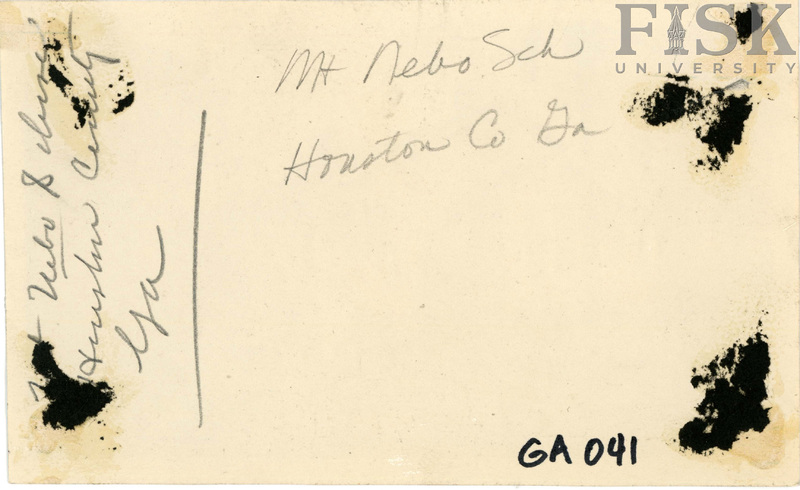 FISK
UNIVERSITY
Mt Nebo Sch
Houston Co Ga
Nebo School
Houston County
Ga
GA 041